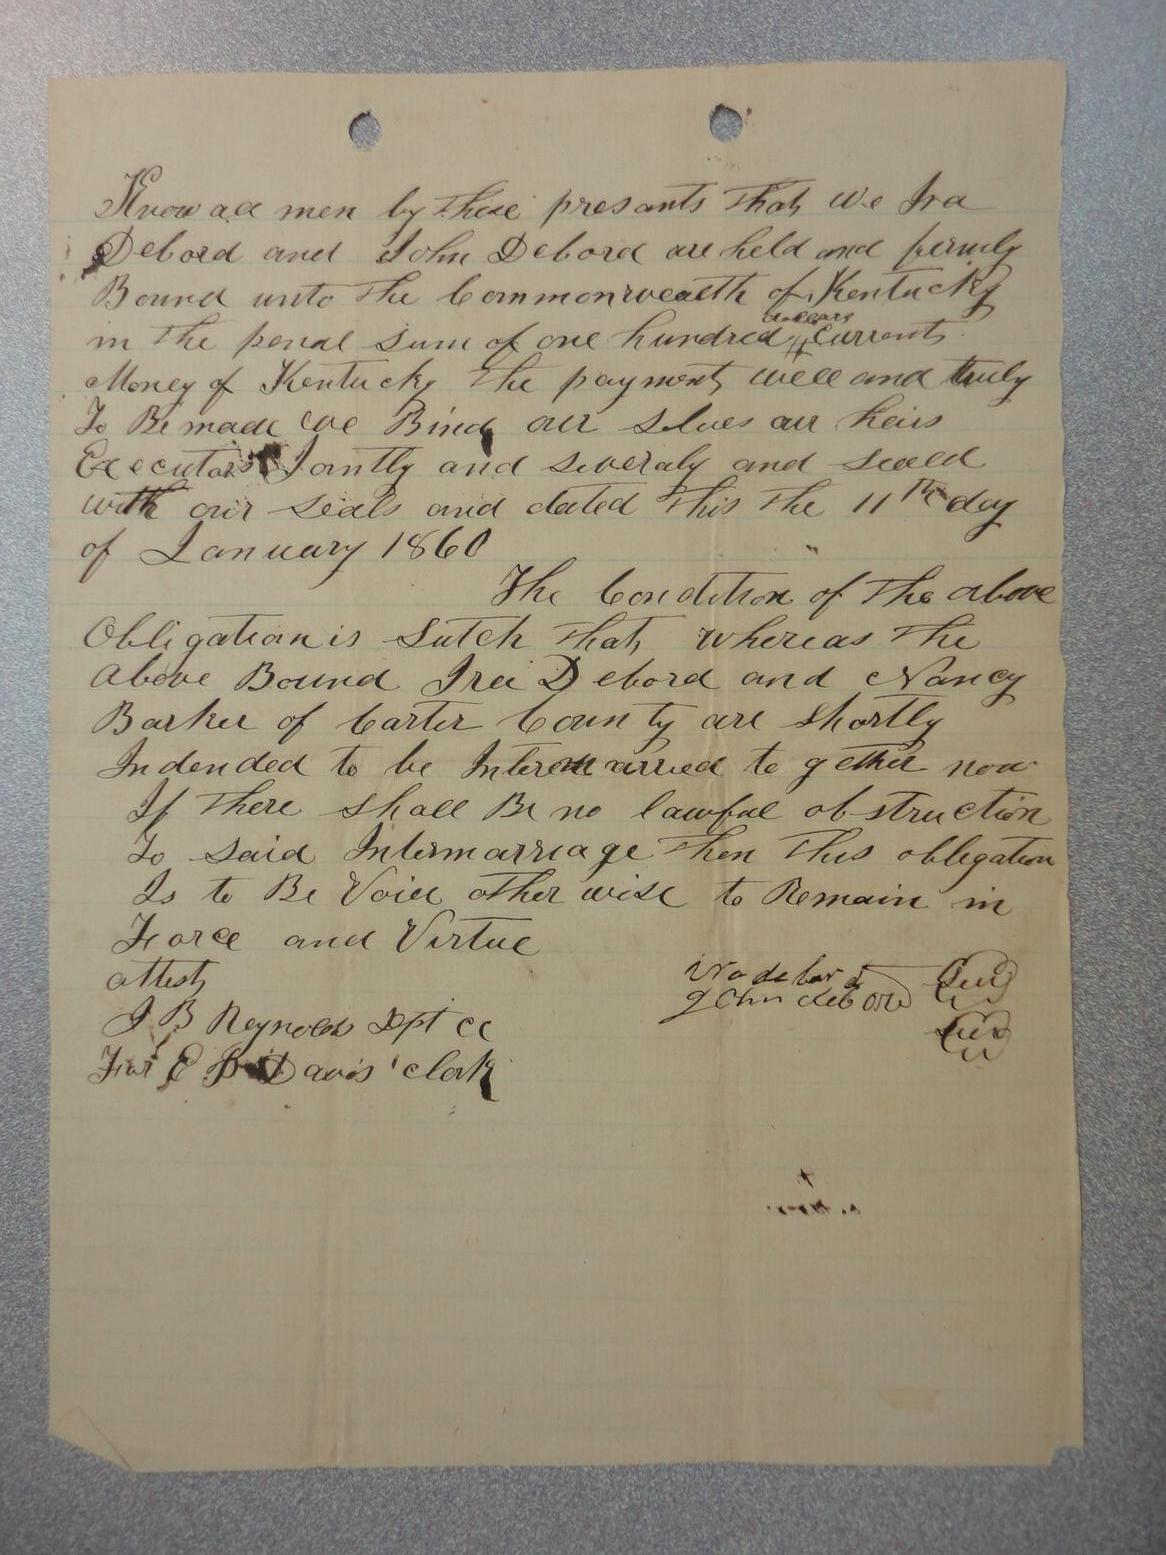 Know all men by these presants that we Ira
Debord and John Debord are held and firmly
Bound unto the Commonwealth of Kentucky
in the penal sum of one hundred dollars Current
Money of Kentucky the payment well and truly
To Be made we Bind our selves our heirs
Executors Jointly and severaly and sealed
with our seals and dated this the 11th day
of January 1860
The Condition of the above
Obligation is Sutch that whereas the
above Bound Ira Debord and Nancy
Barker of Carter County are shortly
Indended to be Intermarried to gether now
If there shall Be no lawful obstruction
To said Intermarriage then this obligation
Is to Be Void other wise to Remain in
Force and Virtue
attest
ira debord Seal
John debord Seal
J B Reynolds Dpt cc
For E Davis clerk